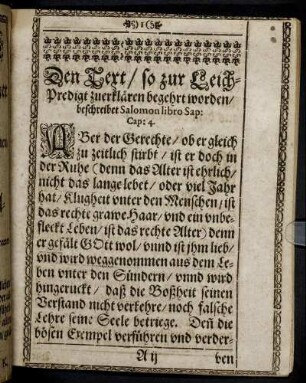 Den Text/ so zur Leich-
Predigt zuerklären begehrt worden/
beschreibet Salomon libro Sap:
Cap: 4.
ABer der Gerechte/ ob er gleich
zu zeitlich stirbt/ ist er doch in
der Ruhe (denn das Alter ist ehrlich/
nicht das lange lebet/ oder viel Jahr
hat/ Klugheit vnter den Menschen/ ist
das rechte grawe Haar/ vnd ein vnbe-
fleckt Leben/ ist das rechte Alter) denn
er gefält GOtt wol/ vnnd ist jhm lieb/
vnd wird weggenommen aus dem Le-
ben vnter den Sündern/ vnnd wird
hingeruckt/ daß die Boßheit seinen
Verstand nicht verkehre/ noch falsche
Lehre seine Seele betriege. Deñ die
bösen Exempel verführen vnd verder-
A ij
ven